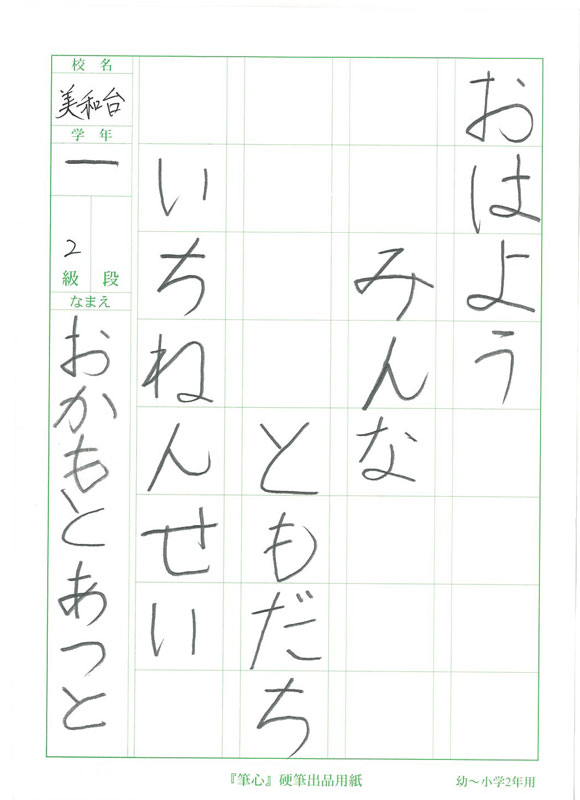 おはよう
みんな
ともだち
いちねんせい
校名
美和台
学年
一
2
級段
なまえ
おかもとあつと
『筆心』硬筆出品用紙
幼〜小学2年用